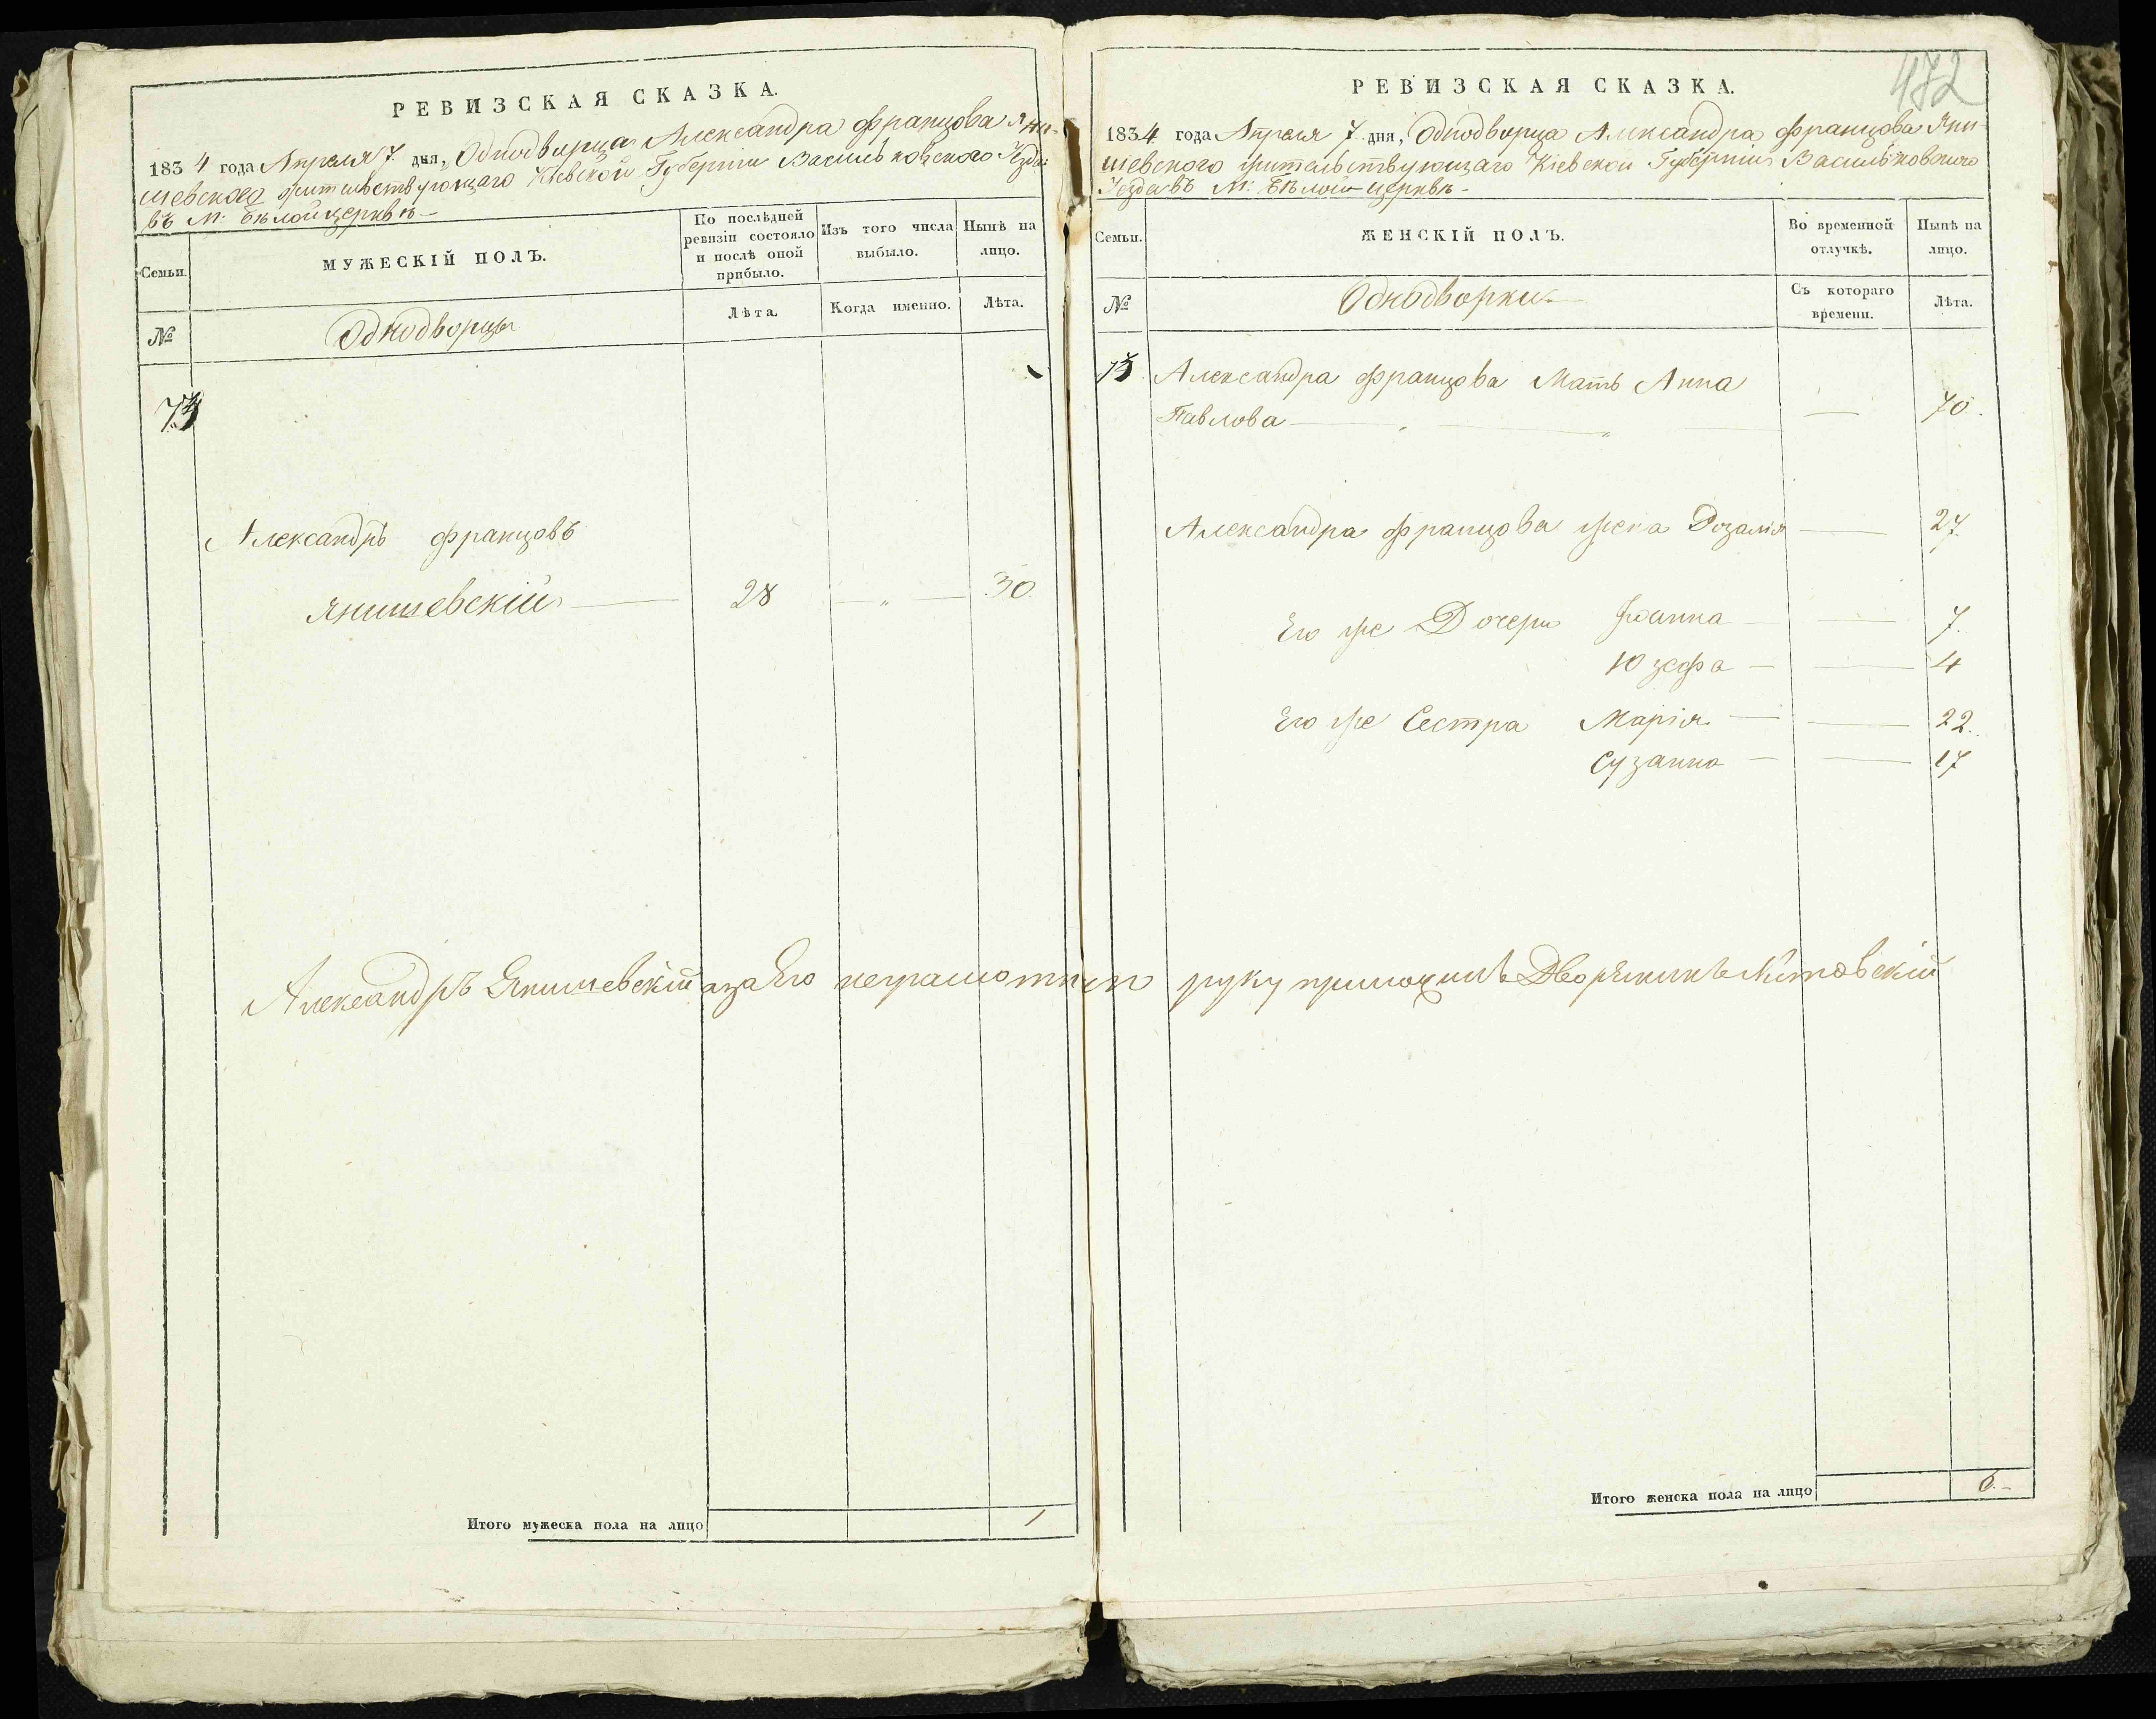 РЕВИЗСКАЯ СКАЗКА.
1834 года Апреля 7. дня, Однодворца Александра Францова Яни-
шевского жительствующаго Кіевской Губерніи Васильковского Уезда
въ М: Белой церкве
Семьи.
МУЖЕСКІЙ ПОЛЪ.
По послѣдней ревизіи состояло и послѣ оной прибыло.
Изъ того числа выбыло.
Нынѣ на лицо.
№
Однодворцы
Лѣта.
Когда именно.
Лѣта.
Александръ Францовъ
Янишевскій — 28 — „ — 30.
Александръ Янишевскій а за Его неграмотнаго руку приложилъ Дворянинъ
Итого мужеска пола на лицо 1
472
РЕВИЗСКАЯ СКАЗКА.
1834 года Апреля 7. дня, Однодворца Александра Францова Яни-
шевского жительствующаго Кіевской Губерніи Васильковского
Уезда въ М: Белой церкве -
Семьи.
ЖЕНСКІЙ ПОЛЪ.
Во временной отлучкѣ.
Нынѣ на лицо.
№
Однодворки
Съ котораго времени.
Лѣта.
Александра Францова Мать Анна
Павлова — — 70.
Александра Францова жена Розалія — 27.
Его же Дочери Іоанна — — 7.
Юзефа — — 4
Его же Сестра Марія — — 22.
Сузанна — — 17
Итого женска пола на лицо 6.-